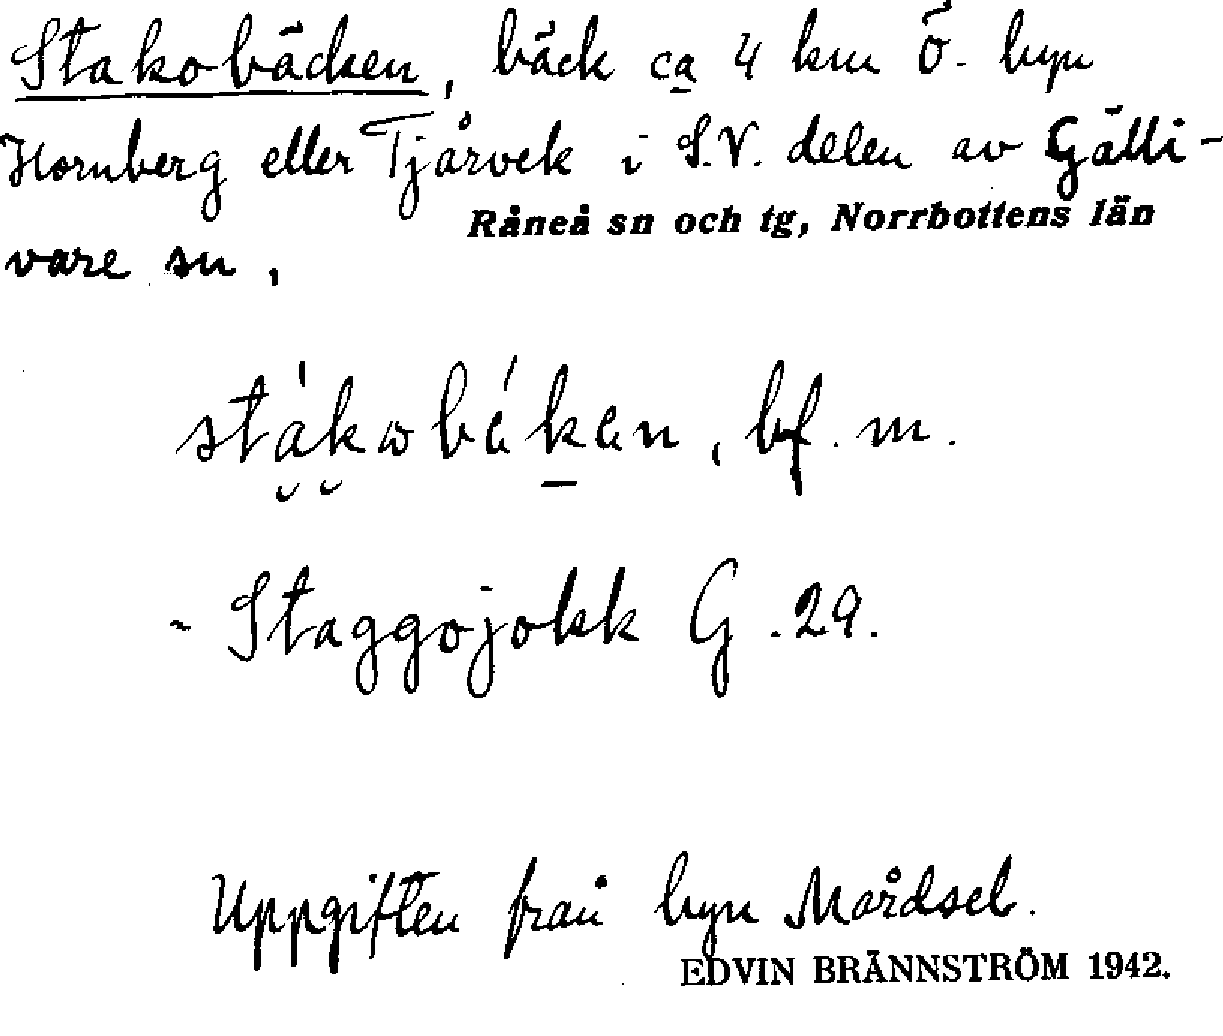 Stakobäcken, bäck ca 4 km Ö. byn
Hornberg eller Tjårvek i S.V. delen av Gälli-
Råneå sn och tg, Norrbottens län
vare sn,
stákobäkan, bf. m.
- Staggojokk G.29.
Uppgiften från byn Mårdsel.
EDVIN BRÄNNSTRÖM 1942.